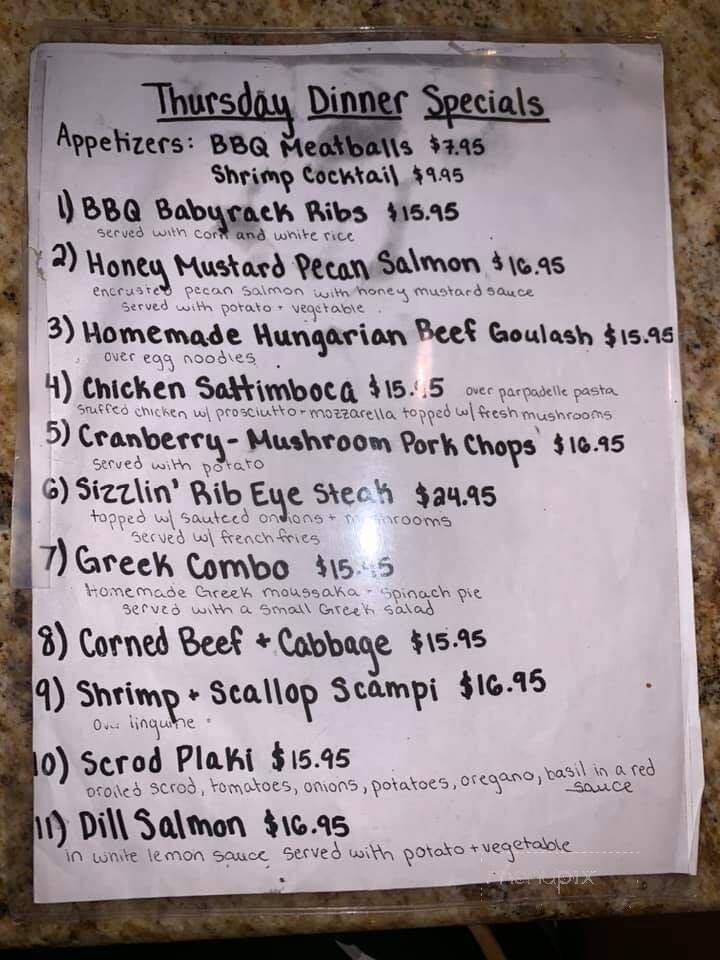 Thursday Dinner Specials
Appetizers: BBQ Meatballs $7.95
Shrimp Cocktail $9.95
1) BBQ Babyrack Ribs $15.95
served with corn and white rice
2) Honey Mustard Pecan Salmon $16.95
encrusted pecan salmon with honey mustard sauce
served with potato + vegetable
3) Homemade Hungarian Beef Goulash $15.95
over egg noodles
4) Chicken Saltimboca over parpadelle pasta
stuffed chicken w/ prosciutto + mozzarella topped w/ fresh mushrooms
5) Cranberry-Mushroom Pork Chops $16.95
served with potato
6) Sizzlin' Rib Eye Steak $24.95
topped w/ sauteed onions + mushrooms
served w/ french fries
7) Greek Combo
Homemade Greek moussaka + spinach pie
served with a small Greek salad
8) Corned Beef + Cabbage $15.95
9) Shrimp + Scallop Scampi $16.95
Over linguine
10) Scrod Plaki $15.95
broiled scrod, tomatoes, onions, potatoes, oregano, basil in a red
sauce
11) Dill Salmon $16.95
in white lemon sauce served with potato + vegetable
menupix